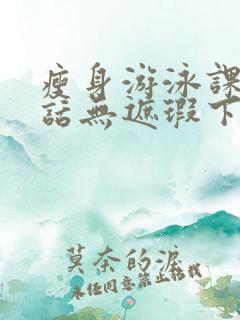 瘦身游泳課
話無遮瑕下
莫奈的淚
未任同意禁止轉載